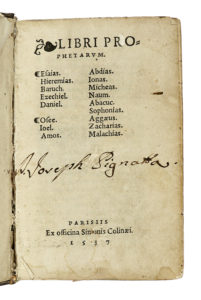 LIBRI PRO-
PHETARVM.
Esaias. Abdias.
Hieremias. Ionas.
Baruch. Micheas.
Ezechiel. Naum.
Daniel. Abacuc.
Sophonias.
Osee. Aggæus.
Ioel. Zacharias.
Amos. Malachias.
Joseph Pignatta.
PARISIIS
Ex officina Simonis Colinæi.
1537